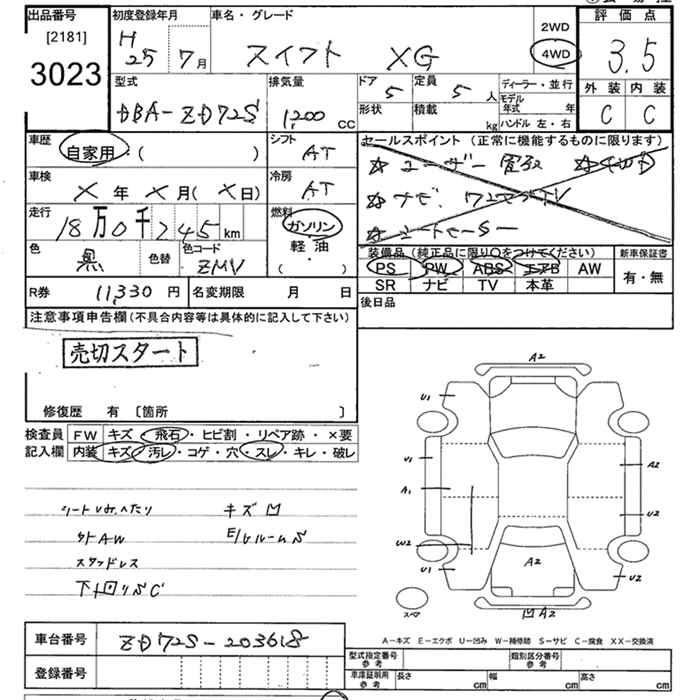 出品番号 初度登録年月 車名・グレード 評価点
[2181] H 2WD
3023 25 7月 スイフト XG 4WD 3.5
型式 排気量 ドア 定員 ディーラー・並行 外装 内装
DBA-ZD72S 1,200 CC 5 5人 モデル年式 年 C C
形状 積載 kg ハンドル 左・右
車歴 シフト セールスポイント (正常に機能するものに限ります)
自家用・( ) AT ☆ユーザー買取 ☆4WD
車検 冷房 ☆ナビ.ワンセグTV
X 年 X 月( X 日) AT ☆シートヒーター
走行 燃料
18万0千245km ガソリン
色 色替 色コード 軽・油 装備品(純正品に限り○をつけてください) 新車保証書
黒 ZMV ・( ) PS PW ABS エアB AW 有・無
SR ナビ TV 本革
R券 11,330円 名変期限 月 日 後日品
注意事項申告欄(不具合内容等は具体的に記入して下さい)
売切スタート
修復歴 有 〔箇所 〕
検査員 FW キズ・飛石・ヒビ割・リペア跡・×要
記入欄 内装 キズ・汚レ・コゲ・穴・スレ・キレ・破レ
キズ凹
外AW
スタッドレス
下回りSC
A2
U1
U1 A2
A1 U2
W2
U1 A2 U2
スペア 凹A2
A-キズ E-エクボ U-凹み W-補修跡 S-サビ C-腐食 XX-交換済
車台番号 ZD72S-203618
型式指定番号 参考 類別区分番号 参考
登録番号 車庫証明用 参考 長さ cm 幅 cm 高さ cm